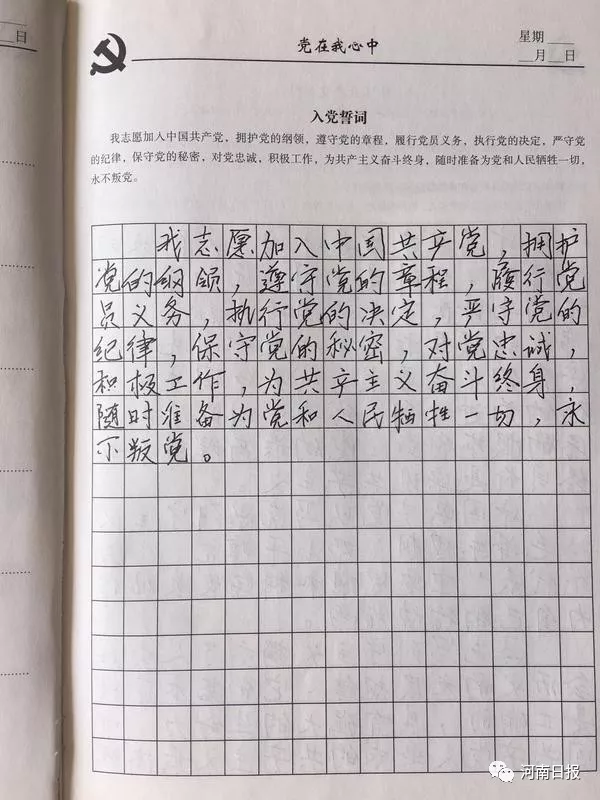 日
党在我心中
星期
月 日
入党誓词
我志愿加入中国共产党，拥护党的纲领，遵守党的章程，履行党员义务，执行党的决定，严守党
的纪律，保守党的秘密，对党忠诚，积极工作，为共产主义奋斗终身，随时准备为党和人民牺牲一切，
永不叛党。
我志愿加入中国共产党，拥护
党的纲领，遵守党的章程，履行党
员义务，执行党的决定，严守党的
纪律，保守党的秘密，对党忠诚，
积极工作，为共产主义奋斗终身，
随时准备为党和人民牺牲一切，永
不叛党。
河南日报